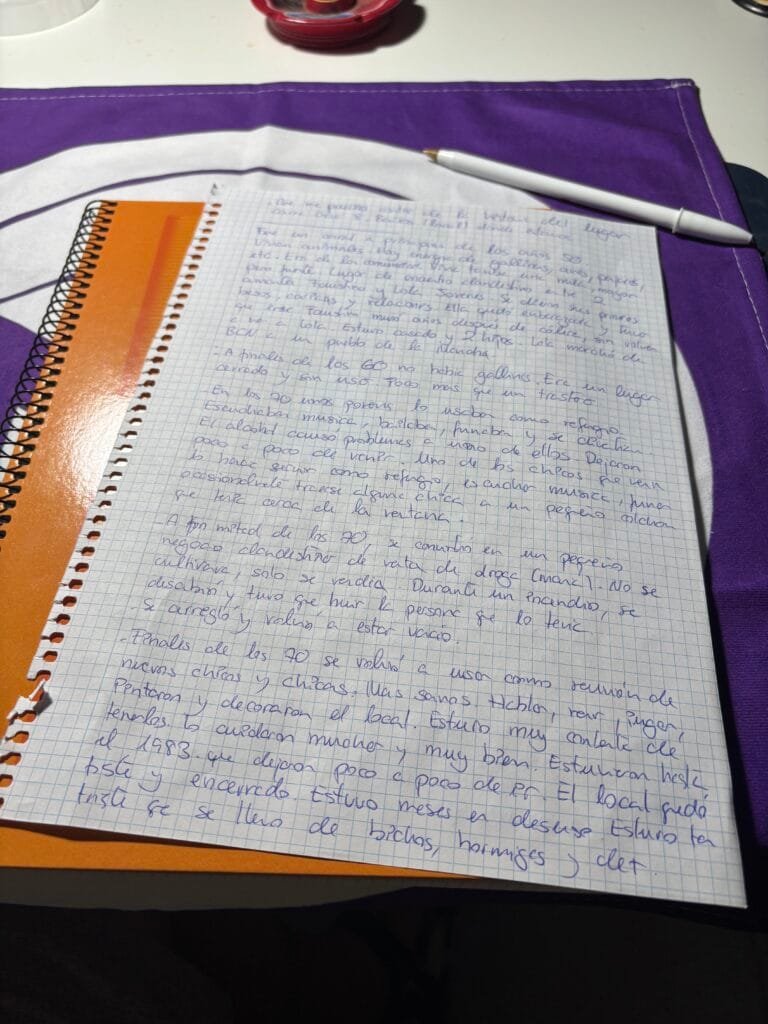 historia del lugar
donde
Fue un corral a principios de los años 50
Vivian animales. Hay energia de gallinas, aves, pajaros,
etc. Era de la comunidad. Vive tenia una mala mayor
pero fuerte. Lugar de encuentro clandestino entre 2
amantes Faustino y Lola. Jovenes. Se dieron sus primeros
besos, caricias y relaciones. Ella quedo embarazada y tuvo
que irse. Faustino murio años despues de colico, sin volver
a ver a Lola. Estuvo casado y 2 hijos. Lola marchó de
BCN a un pueblo de la Mancha.
- A finales de los 60 no habia gallinas. Era un lugar
cerrado y sin uso. Poco mas que un trastero
- En los 70 unos jovenes lo usaban como refugio
Escuchaban musica, bailaban, fumaban y se
El alcohol causo problemas a uno de ellos. Dejaron
poco a poco de venir. Uno de los chicos que venia
lo hacia servir como refugio, escuchar musica, fumar
ocasionalmente traerse alguna chica a un pequeño colchon
que tenia cerca de la ventana.
- A mitad de los 70, se convirtio en un pequeño
negocio clandestino de venta de droga (maria). No se
cultivava, solo se vendia. Durante un incendio, se
descubrió y tuvo que huir la persona que lo tenia.
- Se arregló y volvio a estar vacio.
- Finales de los 70 se volvió a usar como reunión de
nuevos chicos y chicas. Mas sanos. Hablar, reir, jugar,
Pintaron y decoraron el local. Estuvo muy contento de
tenerlos. Lo cuidaron mucho y muy bien. Estuvieron hasta
el 1983. que dejaron poco a poco de ir. El local quedo
triste y encerrado. Estuvo meses en desuso. Estuvo tan
triste que se lleno de bichos, hormigas y